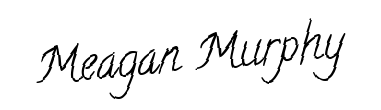 Meagan Murphy